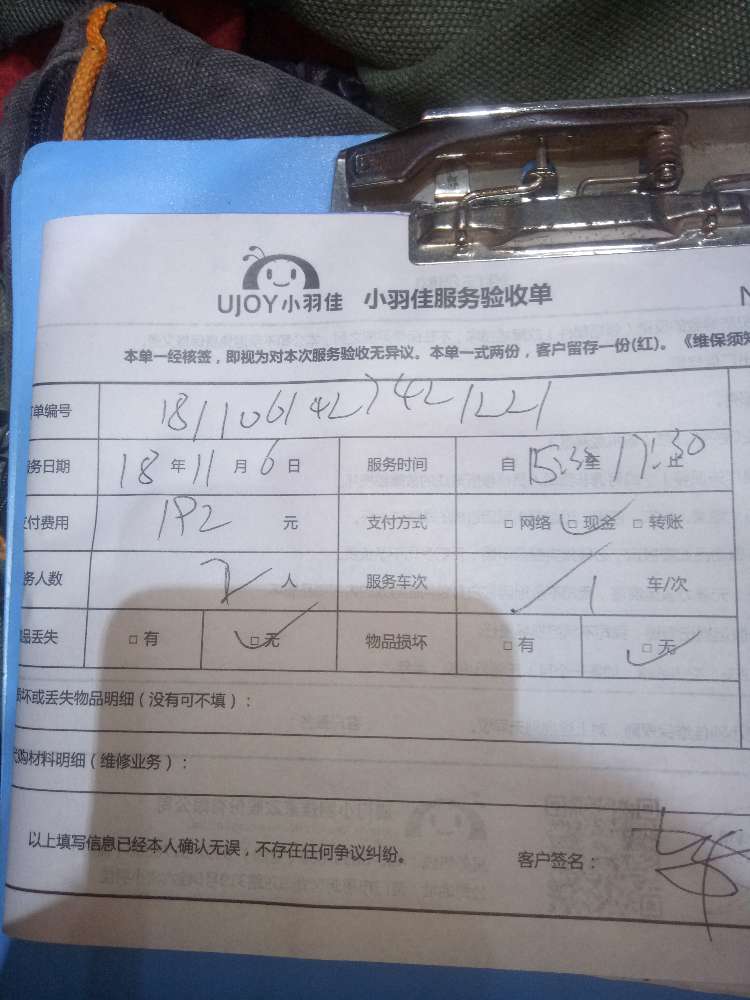 UJOY小羽佳 小羽佳服务验收单
本单一经核签，即视为对本次服务验收无异议。本单一式两份，客户留存一份(红)。《维保须知
单编号 1811061427421221
务日期 18年11月6日 服务时间 自15:3至17:30止
付费用 192元 支付方式 □网络 □现金 □转账
务人数 2人 服务车次 1车/次
品丢失 □有 □无 物品损坏 □有 □无
坏或丢失物品明细（没有可不填）：
购材料明细（维修业务）：
以上填写信息已经本人确认无误，不存在任何争议纠纷。 客户签名：